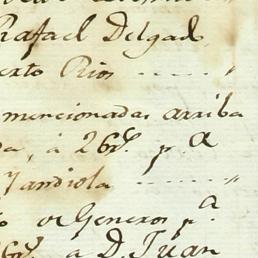 Rafael Delgado
Rios ..... "
mencionadas arriba
à 26 rs. p.a
Yandiola ........ "
Generos p.a
6 rs. a D. Juan